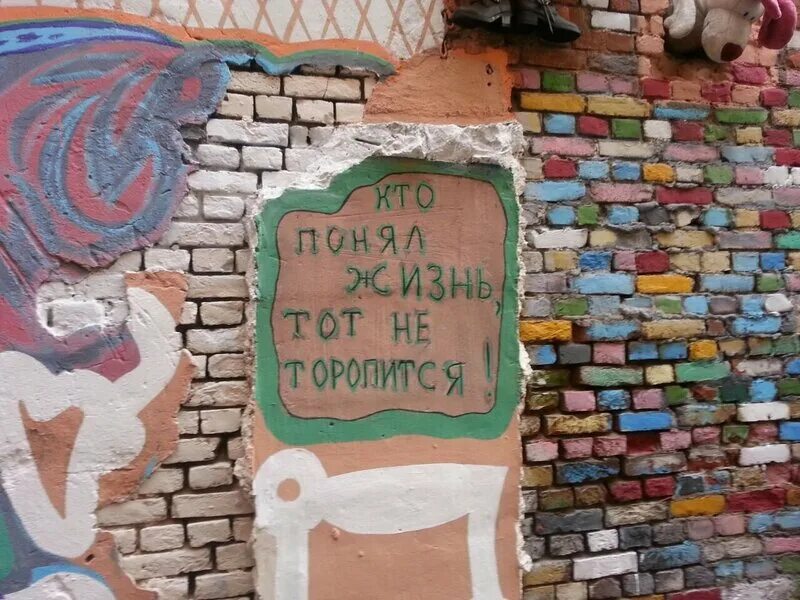 КТО
ПОНЯЛ
ЖИЗНЬ,
ТОТ НЕ
ТОРОПИТСЯ!